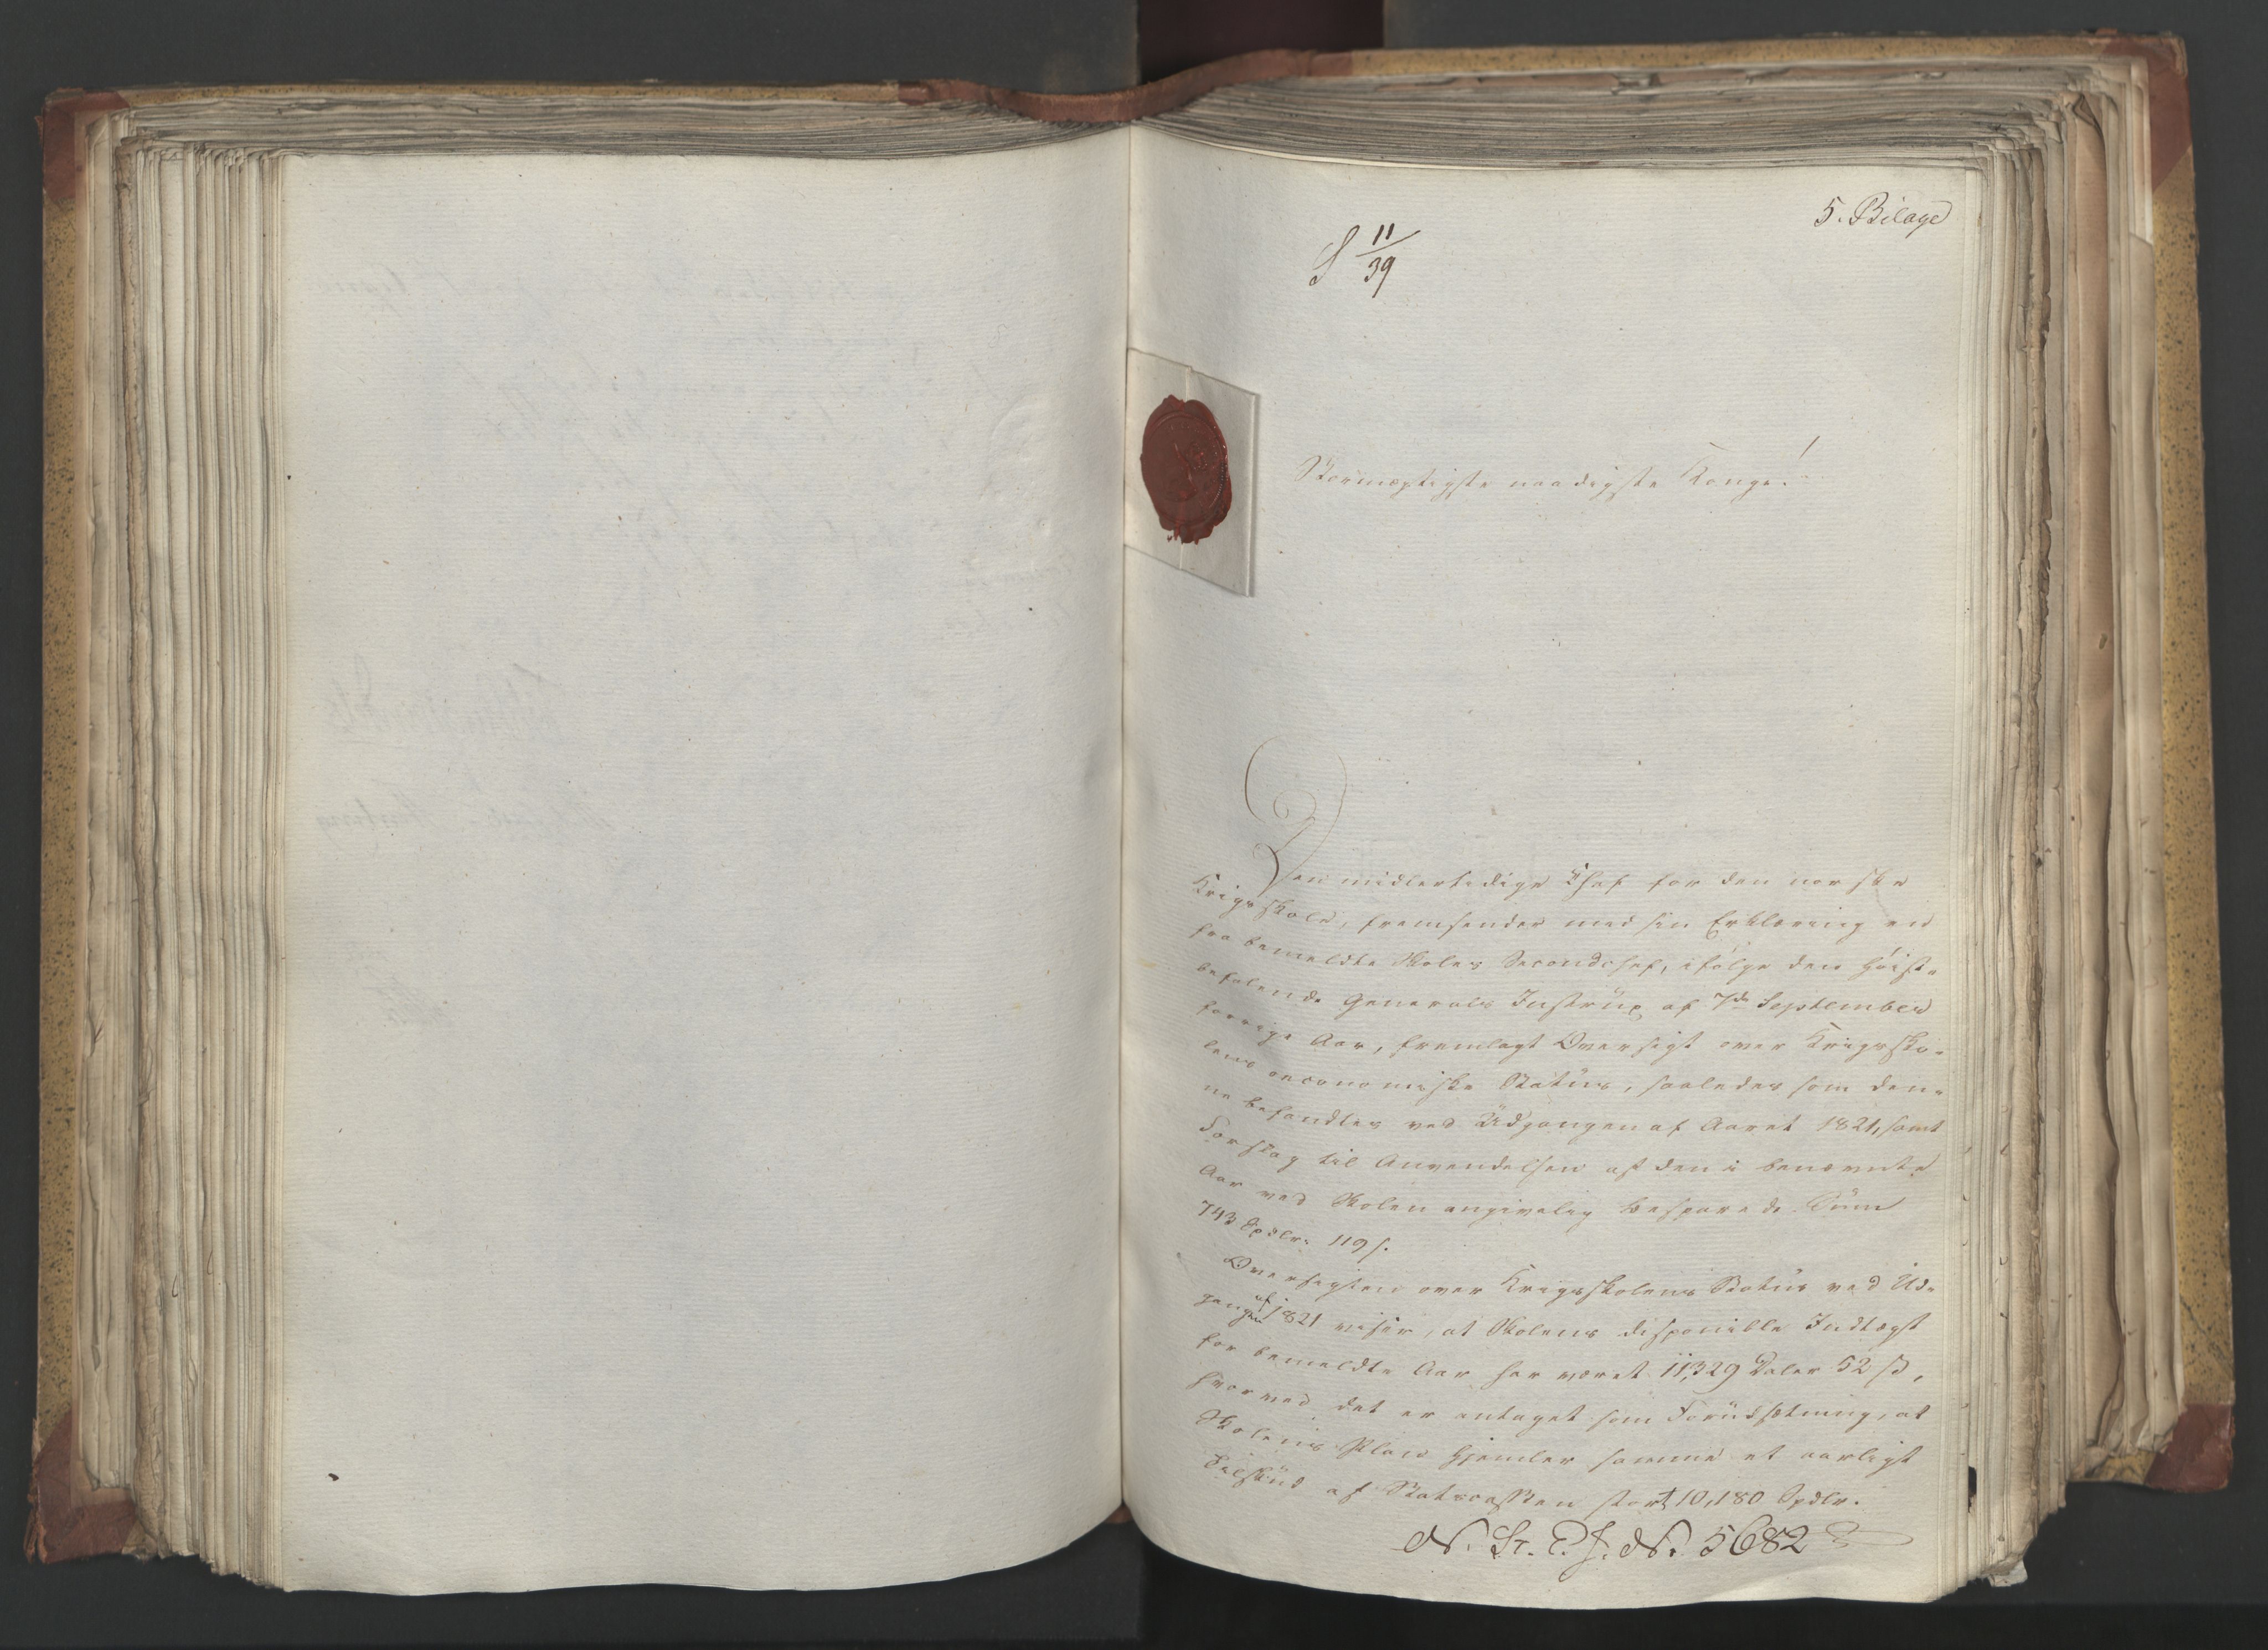 5. Bilage
S 11/39
Stormægtigste naadigste Konge!
Den midlertidige Chef for den norske
Krigsskole, fremsender med sin Erklæring en
fra bemeldte Skoles Secondchef, ifölge den höist-
befalende Generals Instrux af 7de September
forrige Aar, fremlagt Oversigt over Krigssko-
lens oeconomiske Status, saaledes som den-
ne befandtes ved Udgangen af Aaret 1821, samt
Forslag til Anvendelsen af den i benævnte
Aar ved Skolen angivelig besparede Sum
743 Spdlr. 119 s.
Oversigten over Krigsskolens Status ved Ud-
gangen af 1821 viser, at Skolens disponible Indtægt
for bemeldte Aar har været 11,329 Daler 52 ß,
hvorved det er antaget som Forudsætning, at
Skolens Plan hjemler samme et aarligt
Tilskud af Statscassen stort 10,180 Spdlr.
N. St. E. J. No. 5682